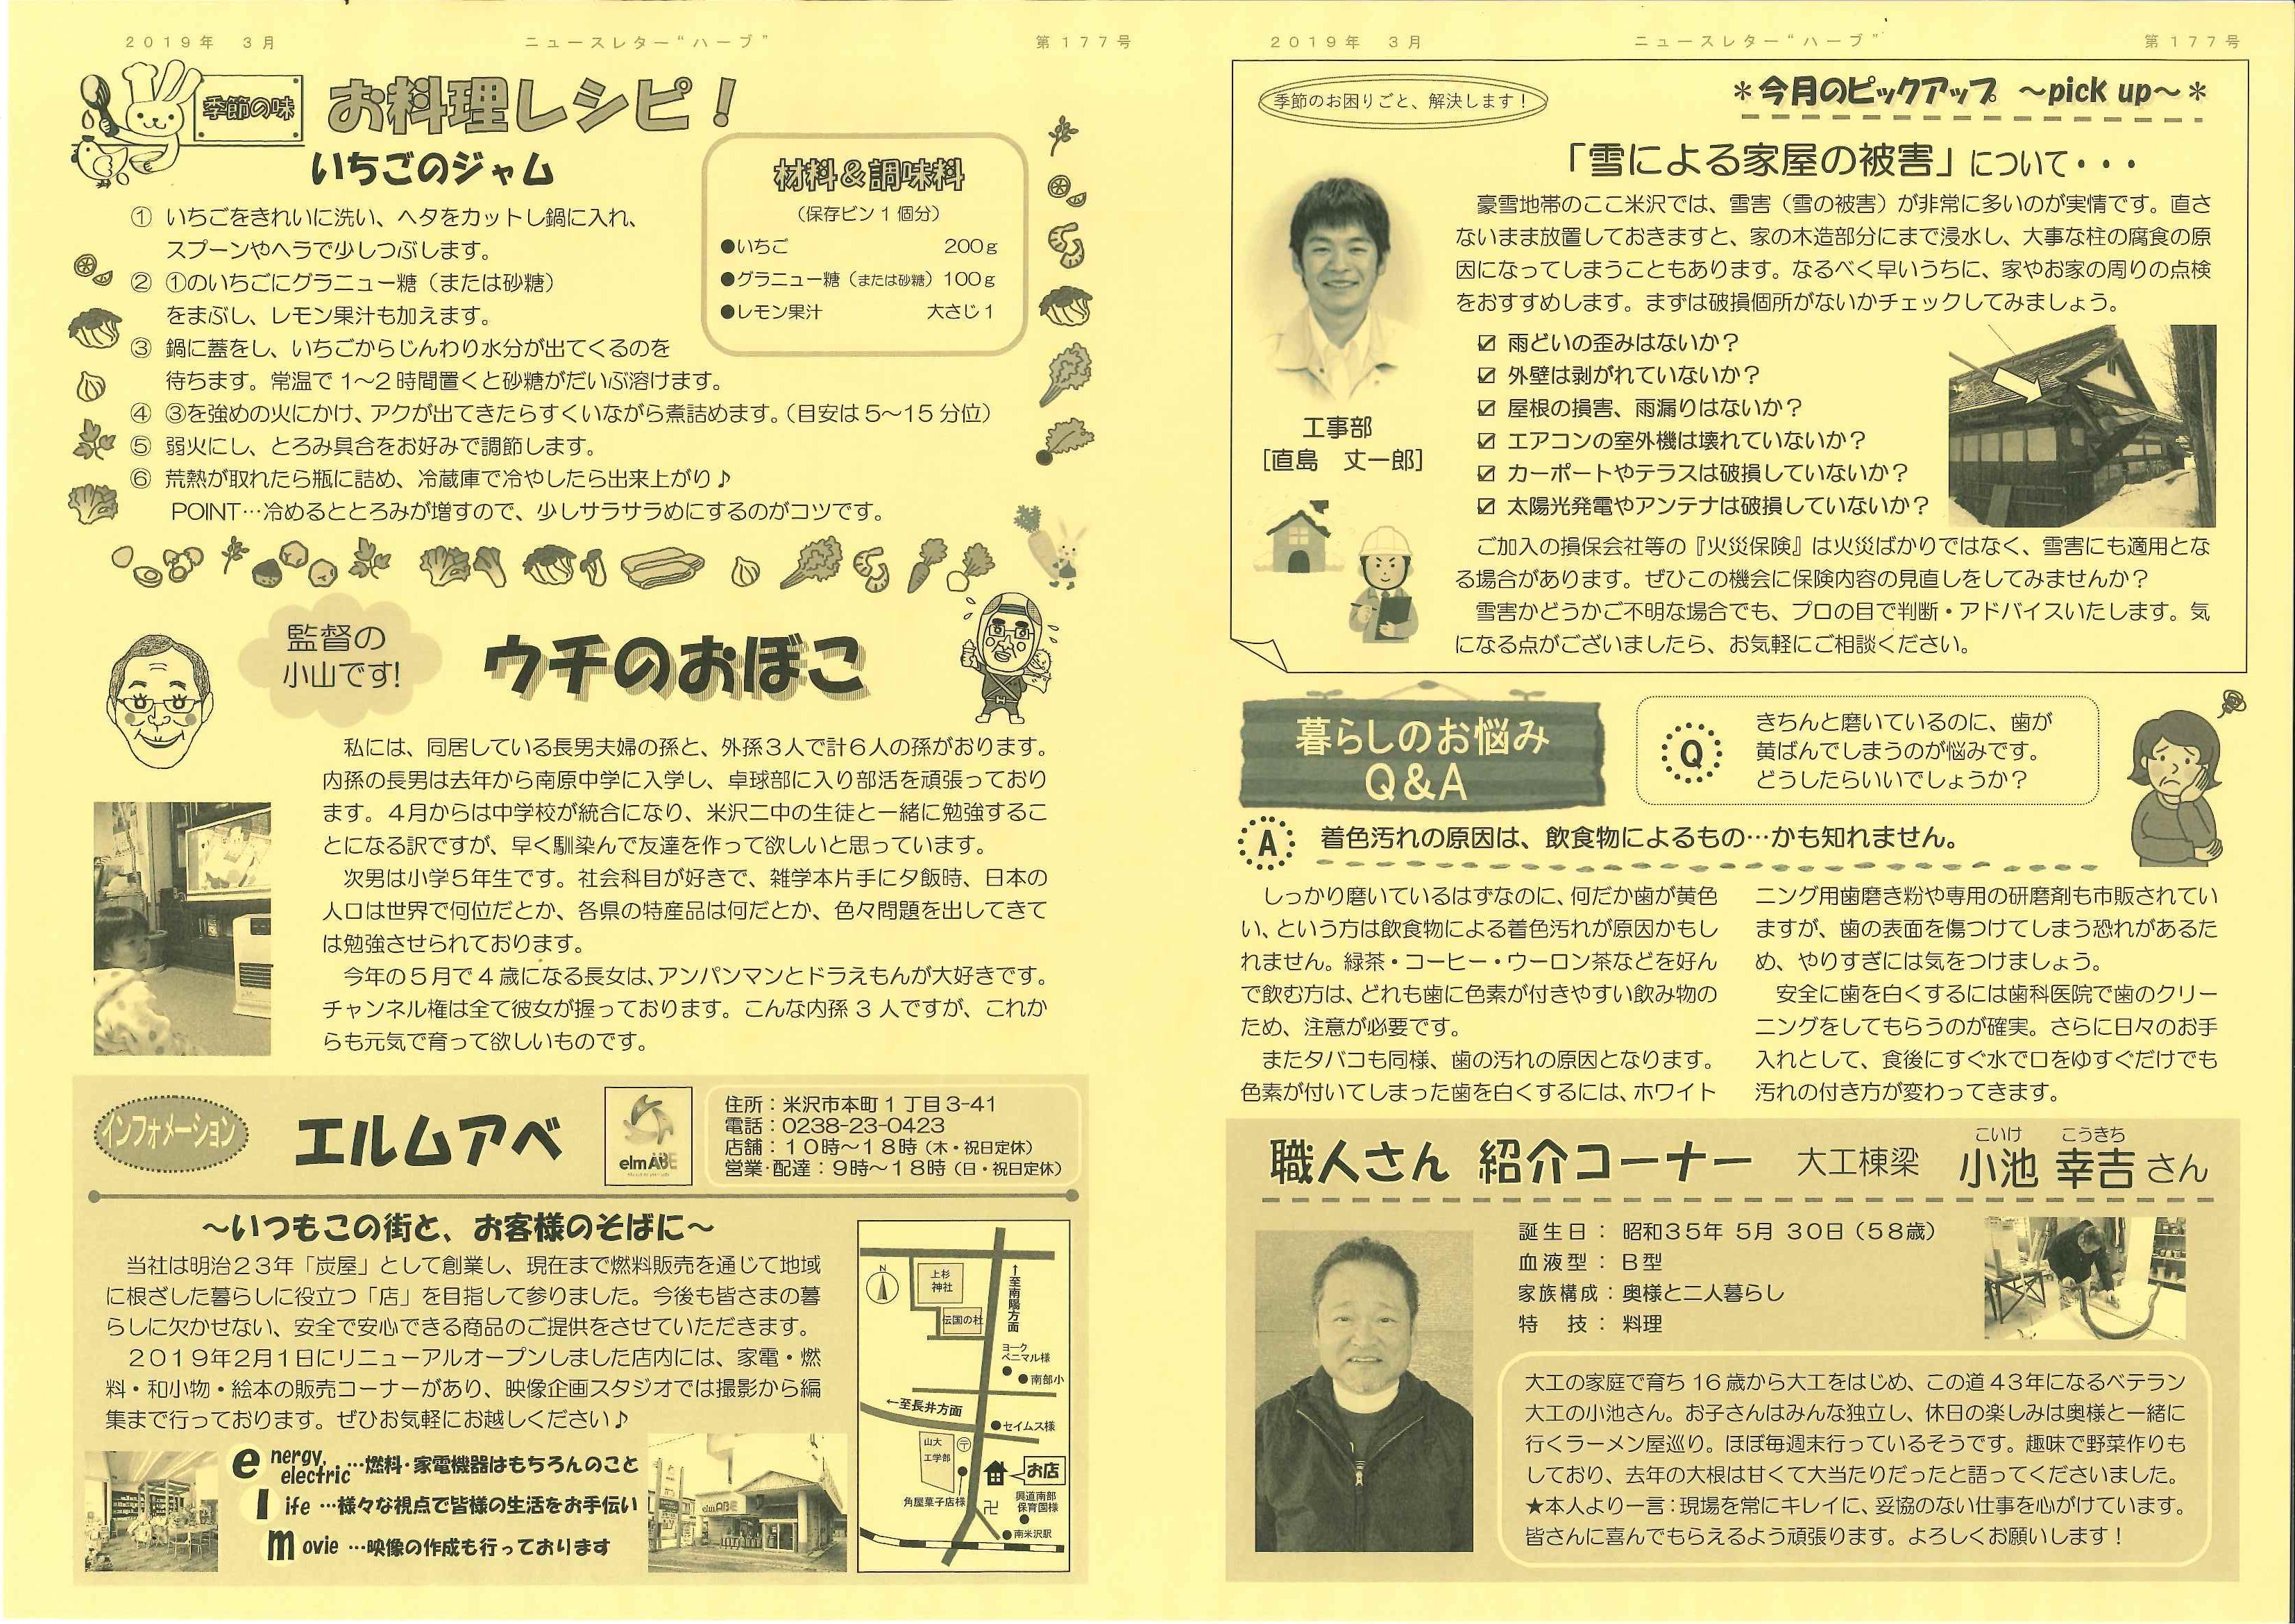 2019年 3月
ニュースレター“ハーブ”
第177号
季節の味
お料理レシピ！
いちごのジャム
① いちごをきれいに洗い、ヘタをカットし鍋に入れ、
スプーンやヘラで少しつぶします。
② ①のいちごにグラニュー糖（または砂糖）
をまぶし、レモン果汁も加えます。
③ 鍋に蓋をし、いちごからじんわり水分が出てくるのを
待ちます。常温で 1～2 時間置くと砂糖がだいぶ溶けます。
④ ③を強めの火にかけ、アクが出てきたらすくいながら煮詰めます。（目安は 5～15 分位）
⑤ 弱火にし、とろみ具合をお好みで調節します。
⑥ 荒熱が取れたら瓶に詰め、冷蔵庫で冷やしたら出来上がり♪
POINT…冷めるととろみが増すので、少しサラサラめにするのがコツです。
材料＆調味料
（保存ビン 1 個分）
●いちご 200g
●グラニュー糖（または砂糖）100g
●レモン果汁 大さじ 1
監督の
小山です!
ウチのおぼこ
私には、同居している長男夫婦の孫と、外孫３人で計６人の孫がおります。
内孫の長男は去年から南原中学に入学し、卓球部に入り部活を頑張っており
ます。４月からは中学校が統合になり、米沢二中の生徒と一緒に勉強するこ
とになる訳ですが、早く馴染んで友達を作って欲しいと思っています。
次男は小学５年生です。社会科目が好きで、雑学本片手に夕飯時、日本の
人口は世界で何位だとか、各県の特産品は何だとか、色々問題を出してきて
は勉強させられております。
今年の５月で 4 歳になる長女は、アンパンマンとドラえもんが大好きです。
チャンネル権は全て彼女が握っております。こんな内孫 3 人ですが、これか
らも元気で育って欲しいものです。
インフォメーション
エルムアベ
elm ABE
住所：米沢市本町 1 丁目 3-41
電話：0238-23-0423
店舗：１０時～１８時（木・祝日定休）
営業・配達：９時～１８時（日・祝日定休）
～いつもこの街と、お客様のそばに～
当社は明治２３年「炭屋」として創業し、現在まで燃料販売を通じて地域
に根ざした暮らしに役立つ「店」を目指して参りました。今後も皆さまの暮
らしに欠かせない、安全で安心できる商品のご提供をさせていただきます。
２０１９年２月１日にリニューアルオープンしました店内には、家電・燃
料・和小物・絵本の販売コーナーがあり、映像企画スタジオでは撮影から編
集まで行っております。ぜひお気軽にお越しください♪
energy, electric…燃料・家電機器はもちろんのこと
life …様々な視点で皆様の生活をお手伝い
movie …映像の作成も行っております
elmABE
N
上杉
神社
伝国の杜
↑至南陽方面
ヨーク
ベニマル様
●南部小
←至長井方面
●セイムス様
山大
工学部
〒
お店
角屋菓子店様
卍
興道南部
保育園様
●南米沢駅
2019年 3月
ニュースレター“ハーブ”
第177号
季節のお困りごと、解決します！
＊今月のピックアップ ～pick up～＊
「雪による家屋の被害」について・・・
豪雪地帯のここ米沢では、雪害（雪の被害）が非常に多いのが実情です。直さ
ないまま放置しておきますと、家の木造部分にまで浸水し、大事な柱の腐食の原
因になってしまうこともあります。なるべく早いうちに、家やお家の周りの点検
をおすすめします。まずは破損個所がないかチェックしてみましょう。
☑ 雨どいの歪みはないか？
☑ 外壁は剥がれていないか？
☑ 屋根の損害、雨漏りはないか？
☑ エアコンの室外機は壊れていないか？
☑ カーポートやテラスは破損していないか？
☑ 太陽光発電やアンテナは破損していないか？
工事部
[直島 丈一郎]
ご加入の損保会社等の『火災保険』は火災ばかりではなく、雪害にも適用とな
る場合があります。ぜひこの機会に保険内容の見直しをしてみませんか？
雪害かどうかご不明な場合でも、プロの目で判断・アドバイスいたします。気
になる点がございましたら、お気軽にご相談ください。
暮らしのお悩み
Q&A
Q
きちんと磨いているのに、歯が
黄ばんでしまうのが悩みです。
どうしたらいいでしょうか？
A 着色汚れの原因は、飲食物によるもの…かも知れません。
しっかり磨いているはずなのに、何だか歯が黄色
い、という方は飲食物による着色汚れが原因かもし
れません。緑茶・コーヒー・ウーロン茶などを好ん
で飲む方は、どれも歯に色素が付きやすい飲み物の
ため、注意が必要です。
またタバコも同様、歯の汚れの原因となります。
色素が付いてしまった歯を白くするには、ホワイト
ニング用歯磨き粉や専用の研磨剤も市販されてい
ますが、歯の表面を傷つけてしまう恐れがあるた
め、やりすぎには気をつけましょう。
安全に歯を白くするには歯科医院で歯のクリー
ニングをしてもらうのが確実。さらに日々のお手
入れとして、食後にすぐ水で口をゆすぐだけでも
汚れの付き方が変わってきます。
職人さん 紹介コーナー 大工棟梁 小池 幸吉さん
こいけ こうきち
誕生日： 昭和３５年 ５月 ３０日（５８歳）
血液型： Ｂ型
家族構成：奥様と二人暮らし
特 技： 料理
大工の家庭で育ち 16 歳から大工をはじめ、この道 43年になるベテラン
大工の小池さん。お子さんはみんな独立し、休日の楽しみは奥様と一緒に
行くラーメン屋巡り。ほぼ毎週末行っているそうです。趣味で野菜作りも
しており、去年の大根は甘くて大当たりだったと語ってくださいました。
★本人より一言：現場を常にキレイに、妥協のない仕事を心がけています。
皆さんに喜んでもらえるよう頑張ります。よろしくお願いします！